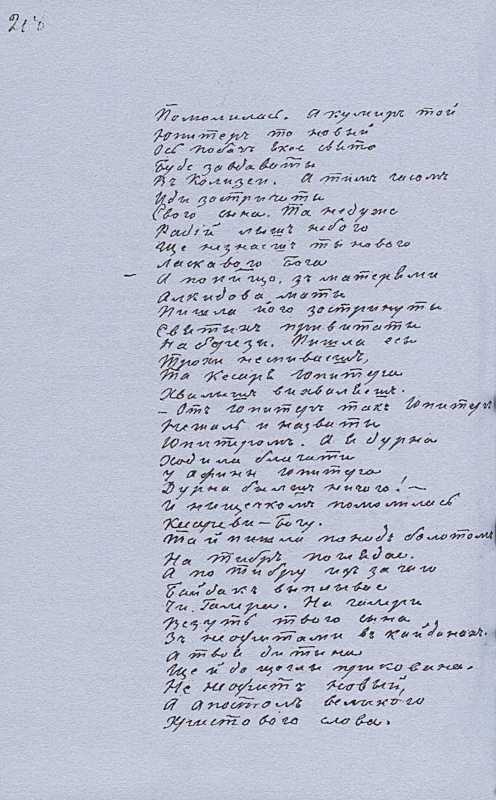 210
Помолилась. А кумиръ той
Юпитеръ то новый
Ось побачъ якое свято
Буде завдаваты
Въ Колизеи. А тымъ часомъ
Иди зострічаты
Свого сына. Та недуже
Радій лышъ небого
Ще незнаешъ ты нового
Ласкавого бога
— А покищо, зъ матерями
Алкидова маты
Пишла його зострінуты
Святыхъ привитаты
На березы. Пишла еси
Трохи неспиваешъ,
Та Кесаря Юпитера
Хвалышъ вихваляешъ.
— Отъ Юпитеръ такъ Юпитеръ
Нежаль и назваты
Юпитеромъ. А я дурна
Ходила благати
у Афины Юпитера
Дурна былышъ ничого! —
И нищечкомъ помолилась
Кесареви — богу.
Та й пишла понадъ болотомъ
На Тибръ поглядае.
А по Тибру изъ за гаю
Байдакъ выплывае
Чи Галера. На галери
Везуть твого сына
Зъ неофитами въ кайданахъ.
А твоя дитына
Ще й до щеглы прикована.
Не неофитъ новый,
А апостолъ великого
Христового слова.